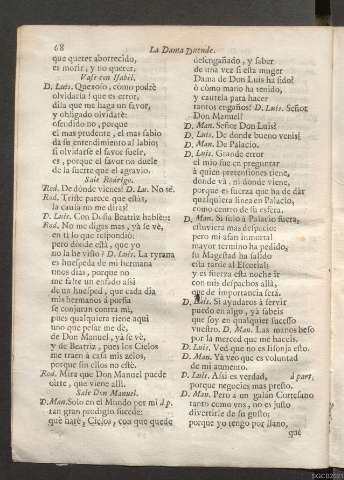 68
La Dama Duende.
que querer aborrecido,
es morir, y no querer.
Vase con Isabel.
D. Luis. Quexoso, còmo podrè
olvidarla! que es error,
dila que me haga un favor,
y obligado olvidarè:
ofendido no, porque
el mas prudente, el mas sabio
dà su entendimiento al labio;
si olvidarse el favor suele,
es, porque el favor no duele
de la suerte que el agravio.
Sale Rodrigo.
Rod. De dònde vienes? D. Lu. No sè.
Rod. Triste parece que estàs,
la causa no me diràs?
D. Luis. Con Doña Beatriz hablè:
Rod. No me digas mas, yà se vè,
en tì lo que respondiò:
pero dònde està, que yo
no la he visto? D. Luis. La tyrana
es huespeda de mi hermana
unos dias, porque no
me falte un enfado assi
de un huesped, que cada dia
mis hermanos à porfia
se conjuran contra mi,
pues qualquiera tiene aqui
uno que pesar me dè,
de Don Manuel, yà se vè,
y de Beatriz, pues los Cielos
me traen à casa mis zelos,
porque sin ellos no estè.
Rod. Mira que Don Manuel puede
oìrte, que viene alli.
Sale Don Manuel.
D. Man. Solo en el Mundo por mi à p.
tan gran prodigio sucede:
què harè, Cielos, con que quede
desengañado, y saber
de una vez si esta muger
Dama de Don Luis ha sido?
ò còmo mano ha tenido,
y cautela para hacer
tantos engaños? D. Luis. Señor
Don Manuel?
D. Man. Señor Don Luis?
D. Luis. De dònde bueno venis?
D. Man. De Palacio.
D. Luis. Grande error
el mio fue en preguntar
à quien pretensiones tiene,
donde và, ni donde viene,
porque es fuerza que ha de dàr
qualquiera linea en Palacio,
como centro de su esfera.
D. Man. Si solo à Palacio fuera,
estuviera mas despacio:
pero mi afan inmortal
mayor termino ha pedido;
su Magestad ha salido
esta tarde al Escorial;
y es fuerza esta noche ir
con mis despachos allà,
que de importancia serà.
D. Luis. Si ayudaros à servir
puedo en algo, yà sabeis
que soy en qualquier sucesso
vuestro. D. Man. Las manos beso
por la merced que me haceis.
D. Luis. Ved que no es lisonja esto.
D. Man. Yà veo que es voluntad
de mi aumento.
D. Luis. Assi es verdad, à part.
porque negocies mas presto.
D. Man. Pero à un galàn Cortesano
tanto como vos, no es justo
divertirle de su gusto;
porque yo tengo por llano,
que